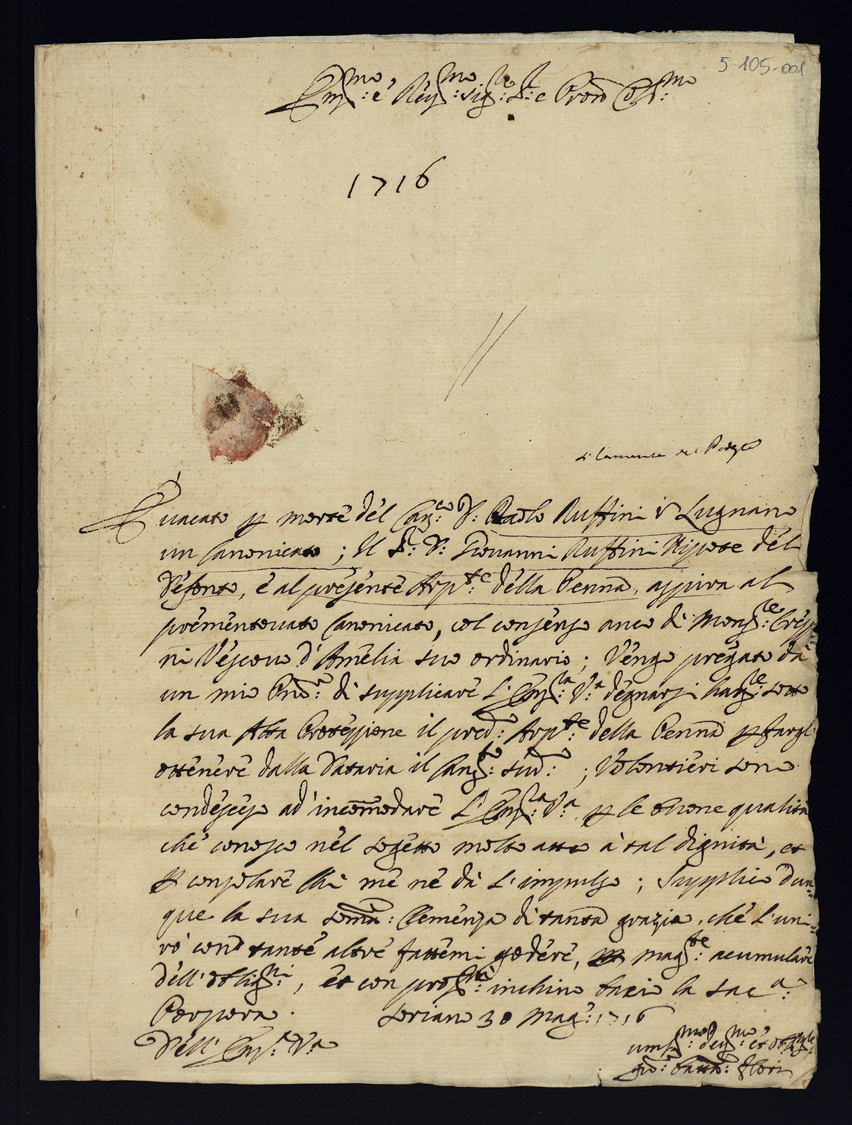 5-105-001
Em.mo e Rev.mo Sig.re Sig.r e Pron Col.mo
1716
È vacato p morte del Can.co D. Paolo Ruffini di Lugnano
un Canonicato ; Il S.r D. Giovanni Ruffini Nipote del
Defonto, è al presente Arp.te della Penna, aspira al
prementovato Canonicato, col consenso anco di Mons.re Cresp
ni Vescovo d'Amelia suo ordinario ; Vengo pregato da
un mio di supplicare L'Em.za V.a degnarsi sotto
la sua Alta Protezzione il pred. Arp.te della Penna p fargl
ottenere dalla Dataria il sud. ; Volontieri sono
condesceso ad' incomodare L'Em.za V.a p le buone qualità
che conosco nel sogetto molto atto à tal dignità, et
p consolare chi me ne dà l'impulso ; Supplico dun=
que la sua somma: Clemenza di tanta grazia, che l'uni=
rò con tante altre fattemi godere, mag.te acumulare
dell' oblig.ni, et con prof.mi inchini bacio la sac.a
Porpora. Soriano 30 Mag.o 1716
Dell' Em.za V.a
um.mo dev.mo et obl.mo
Gio: Batta: Flori